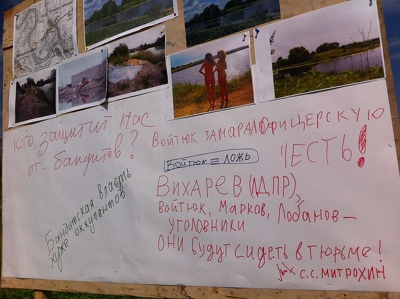 КТО ЗАЩИТИТ НАС
ОТ БАНДИТОВ?
Бандитская власть
хуже оккупантов
ВОЙТЮК ЗАМАРАЛ ОФИЦЕРСКУЮ
ЧЕСТЬ!
ВОЙТЮК = ЛОЖЬ
ВИХАРЕВ (ЛДПР),
ВОЙТЮК, МАРКОВ, ЛОБАНОВ —
УГОЛОВНИКИ
ОНИ БУДУТ СИДЕТЬ В ТЮРЬМЕ!
С.С. МИТРОХИН